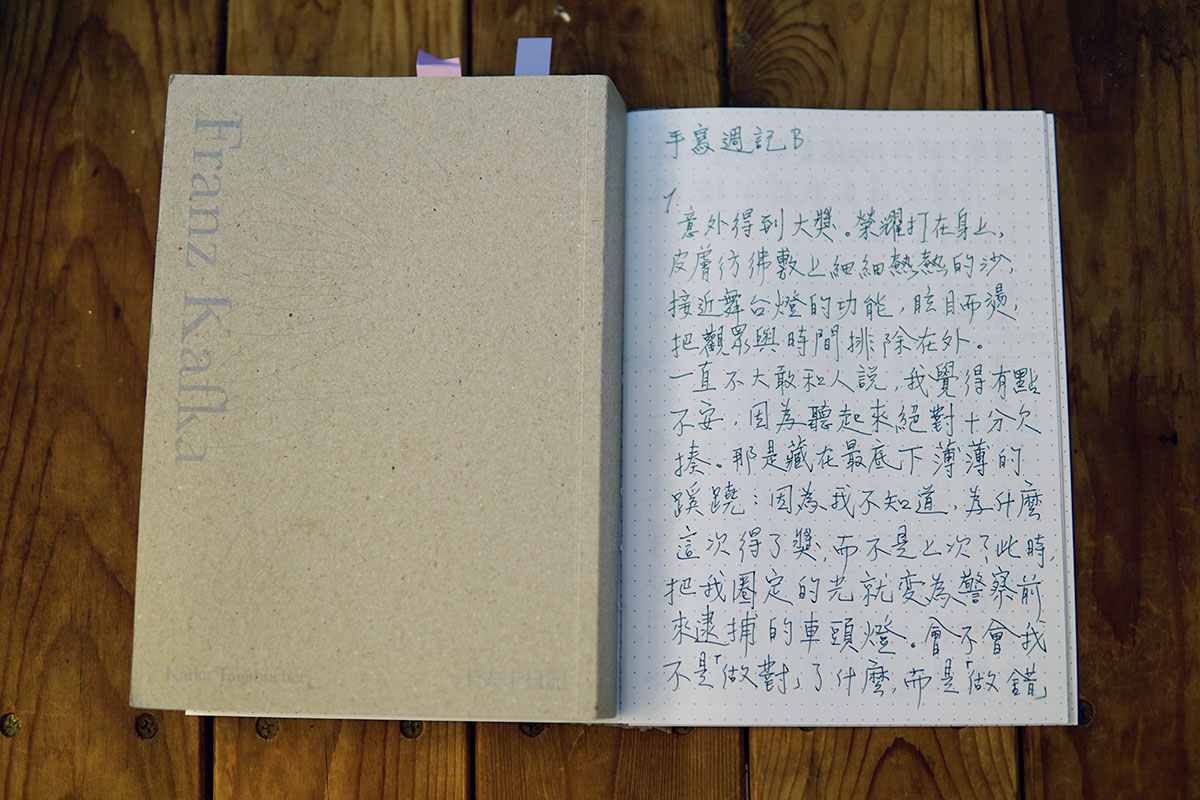 Franz Kafka
Kafka Tagebücher
卡夫卡日記
手寫週記B
1.
意外得到大獎。榮耀打在身上,
皮膚彷彿敷上細細熱熱的沙,
接近舞台燈的功能,眩目而燙,
把觀眾與時間排除在外。
一直不大敢和人說,我覺得有點
不安,因為聽起來絕對十分欠
揍。那是藏在最底下薄薄的
蹊蹺:因為我不知道,為什麼
這次得了獎,而不是上次?此時,
把我圈定的光就變為警察前
來逮捕的車頭燈。會不會我
不是「做對」了什麼,而是「做錯